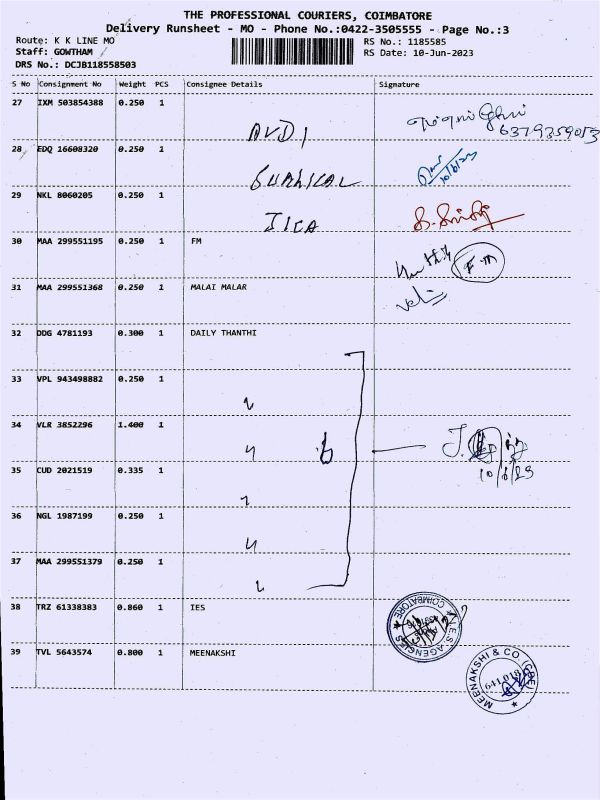 THE PROFESSIONAL COURIERS, COIMBATORE
Delivery Runsheet - MO - Phone No.:0422-3505555 - Page No.:3
Route: K K LINE MO RS No.: 1185585
Staff: GOWTHAM RS Date: 10-Jun-2023
DRS No.: DCJB118558503
S No Consignment No Weight PCS Consignee Details Signature
27 IXM 503854388 0.250 1 AVDI 6379359013
28 EDQ 16608320 0.250 1 10/6/23
29 NKL 8060205 0.250 1 JICA
30 MAA 299551195 0.250 1 FM F M
31 MAA 299551368 0.250 1 MALAI MALAR
32 DDG 4781193 0.300 1 DAILY THANTHI
33 VPL 943498882 0.250 1
34 VLR 3852296 1.400 1 6 J.
35 CUD 2021519 0.335 1 10/6/23
36 NGL 1987199 0.250 1
37 MAA 299551379 0.250 1
38 TRZ 61338383 0.860 1 IES I.E.S. AGENCIES ★ COIMBATORE ★
39 TVL 5643574 0.800 1 MEENAKSHI MEENAKSHI & CO. (CBE) 641 018